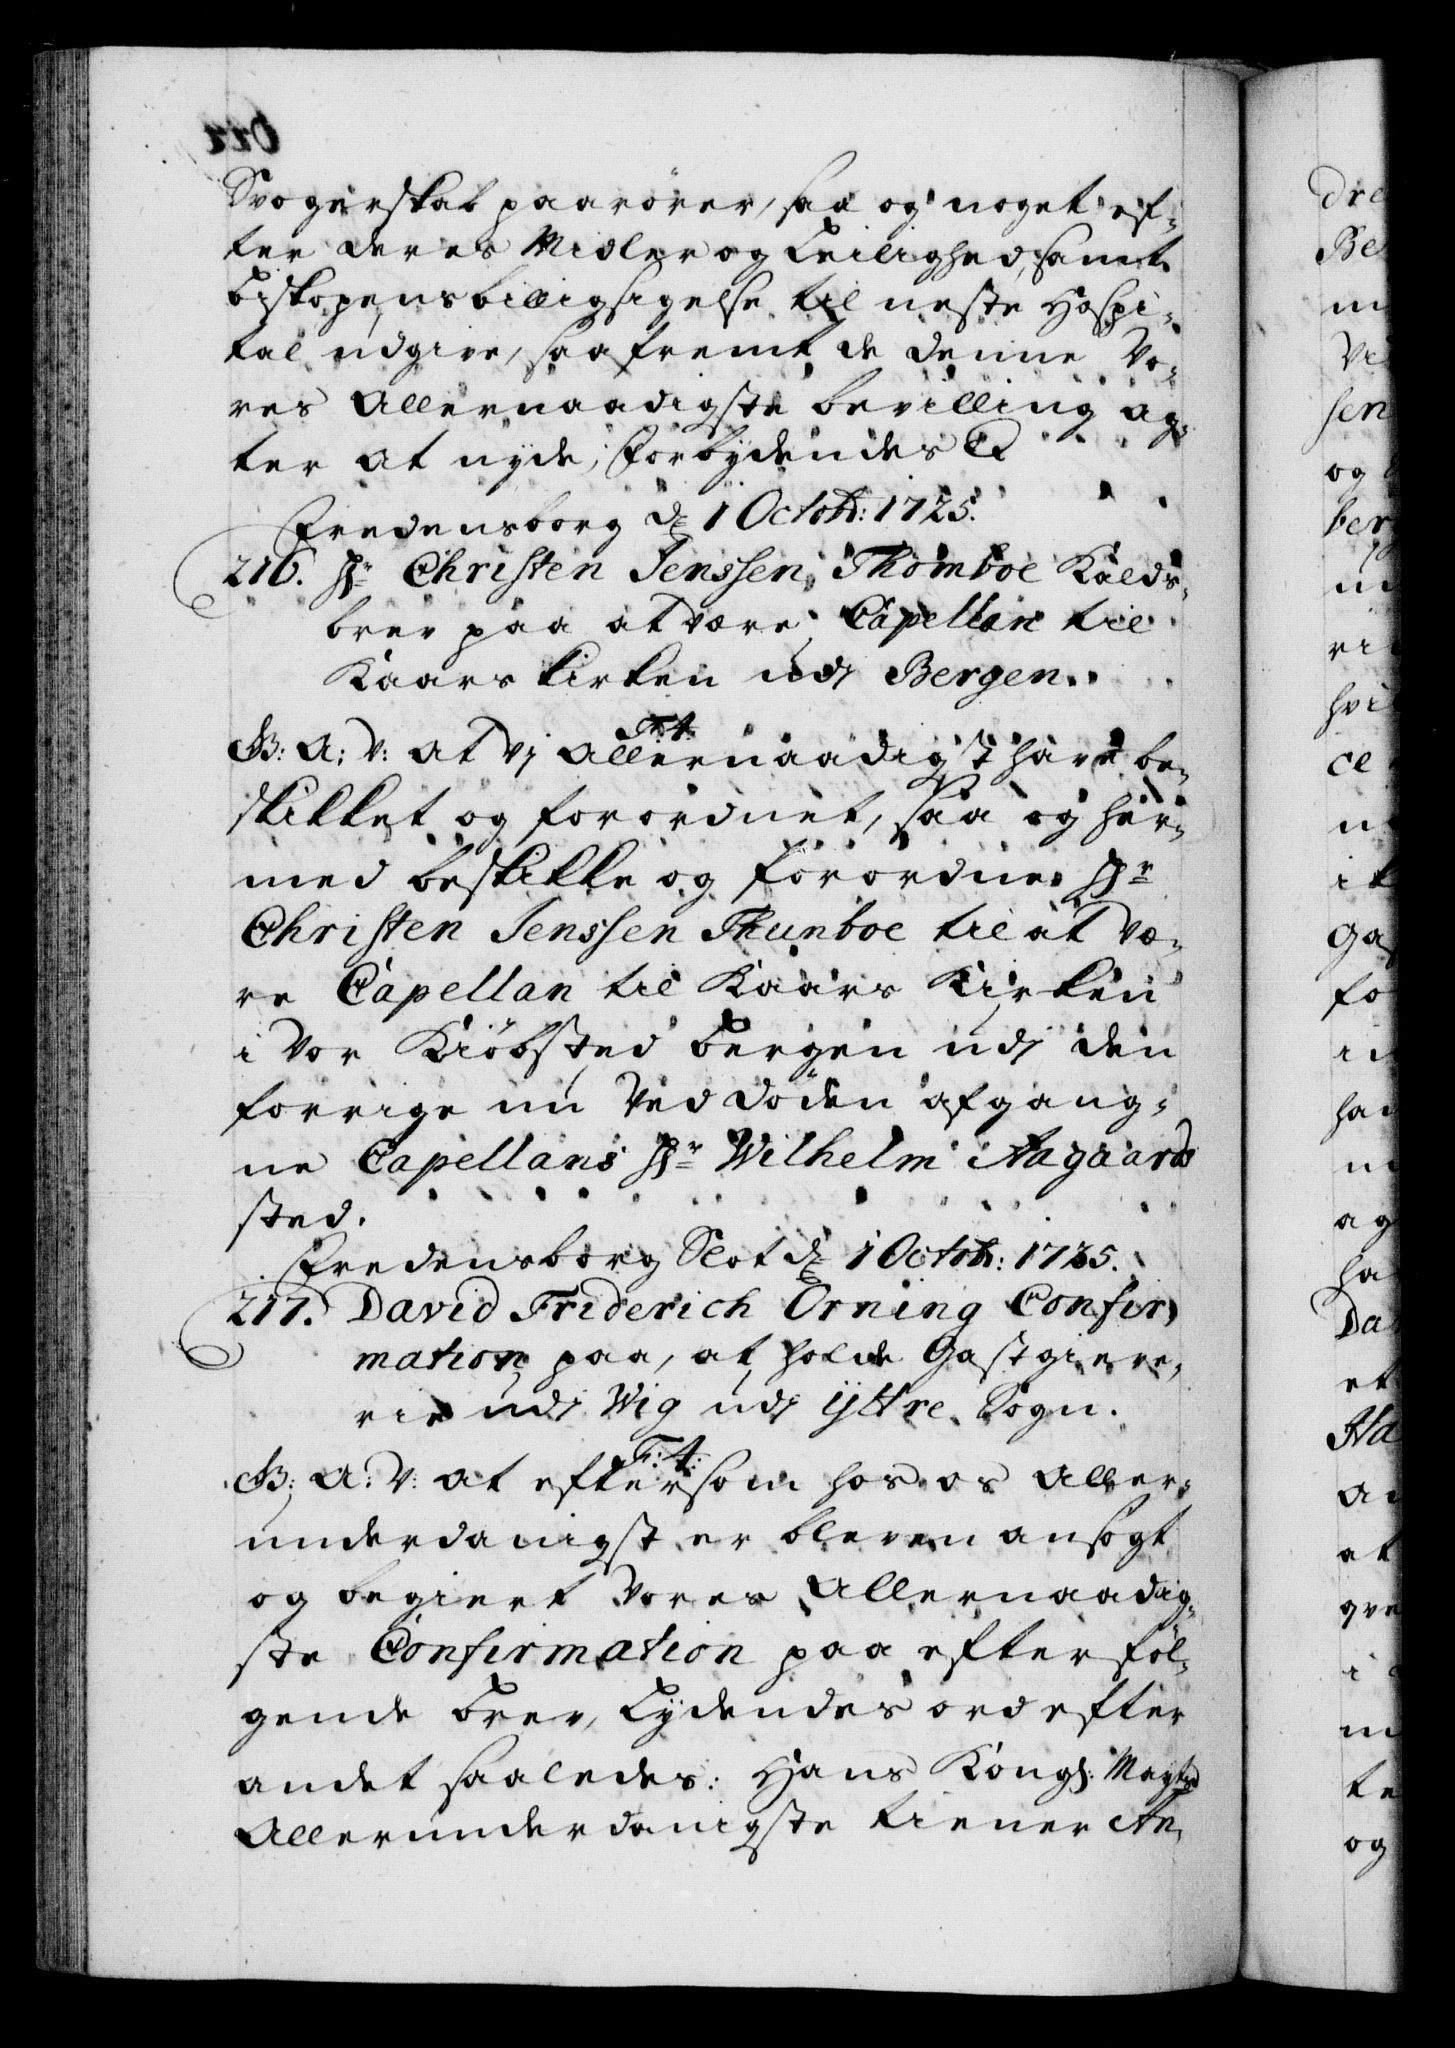 Svogerskab paarörer, saa og noget ef-
ter deres Midler og Leilighed, samt
Biskopens billigsigelse til neste Hospi-
tal udgive, saafremt de denne Vo-
res Allernaadigste bevilling ag-
ter at nyde; Forbydendes &
Fredensborg d: 1 Octobr: 1725.
216. Hr Christen Jenssen Thomboe Kalds-
brev paa at være Capellan til
Kaars kirken udj Bergen.
F: 4.
G: A: V: at Vj Allernaadigst have be-
skikket og forordnet, saa og her-
med beskikke og forordne Hr
Christen Jenssen Thunboe til at væ-
re Capellan til Kaars Kirken
i Vor Kiöbsted Bergen udj den
forrige nu ved döden afgang-
ne Capellans Hr Wilhelm Aagaards
sted.
Fredensborg Slot d: 1 Octobr: 1725.
217. David Friderich Örning Confir-
mation paa, at holde Gastgieve-
rie udj Wig udj ÿttre Sogn.
F: 4:
G: A: V: at eftersom hos os Aller-
underdanigst er bleven ansögt
og begiert Vores Allernaadig-
ste Confirmation paa efterföl-
gende brev, Lydendes ord efter
andet saaledes: Hans Kongl: Mayts
Allerunderdanigste tiener An-